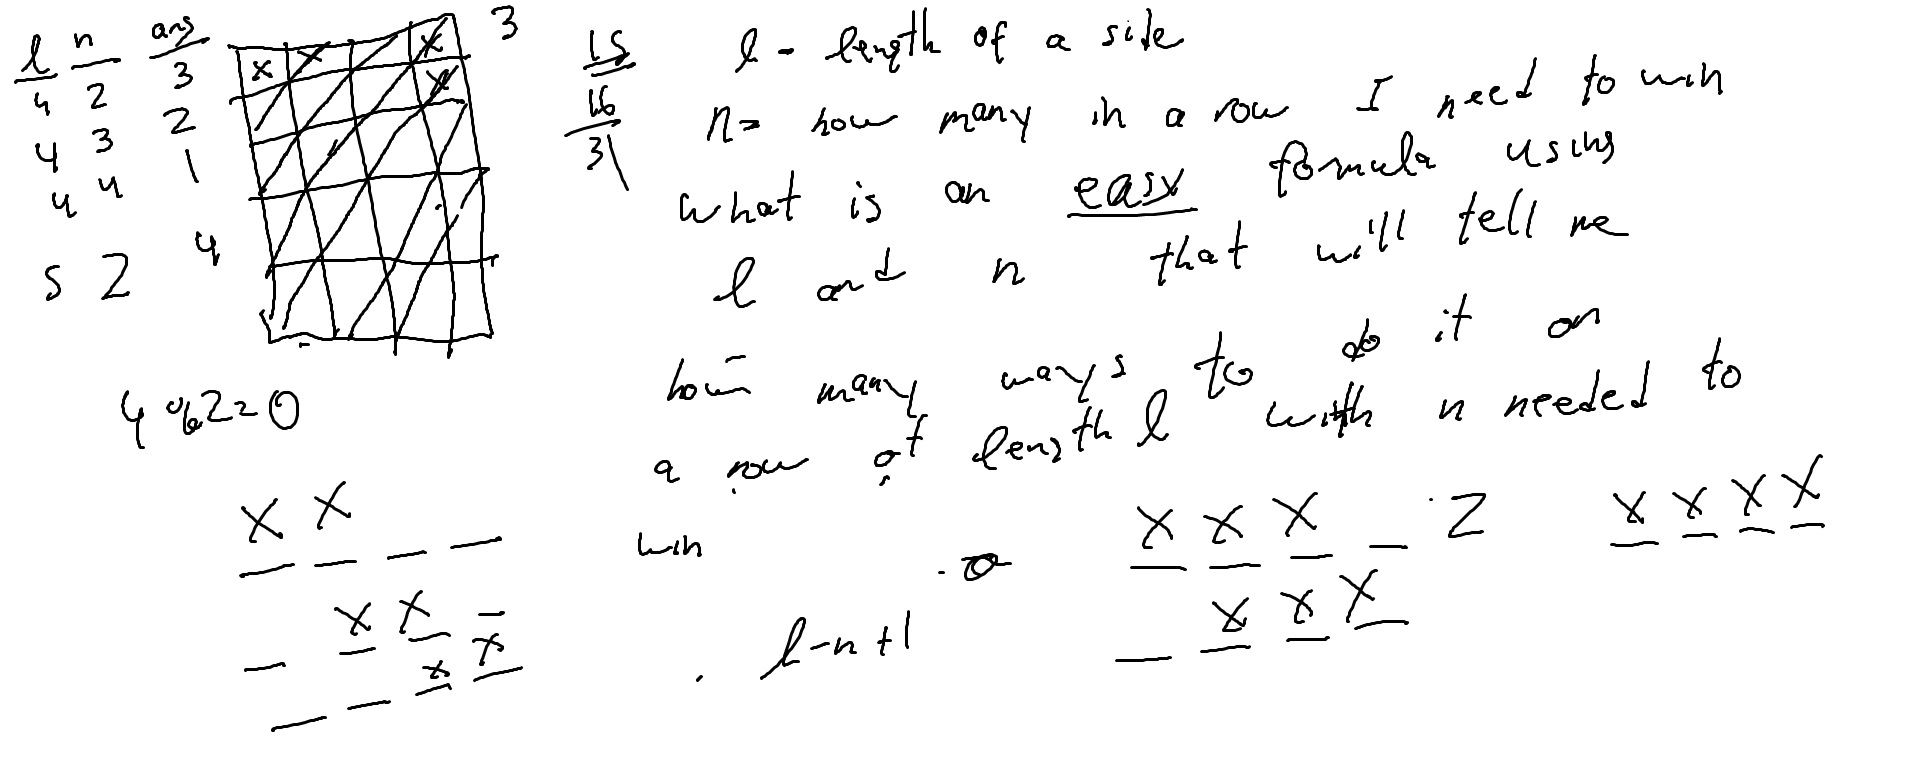 l n ans
4 2 3
4 3 2
4 4 1
5 2 4
x x x
x
3
15
16
31
l - length of a side
n = how many in a row I need to win
what is an easy formula using
l and n that will tell me
how many ways to do it on
a row of length l with n needed to
win
4 % 2 = 0
X X _ _
_ X X _
_ _ X X
l-n+1
X X X _ 2
_ X X X
X X X X